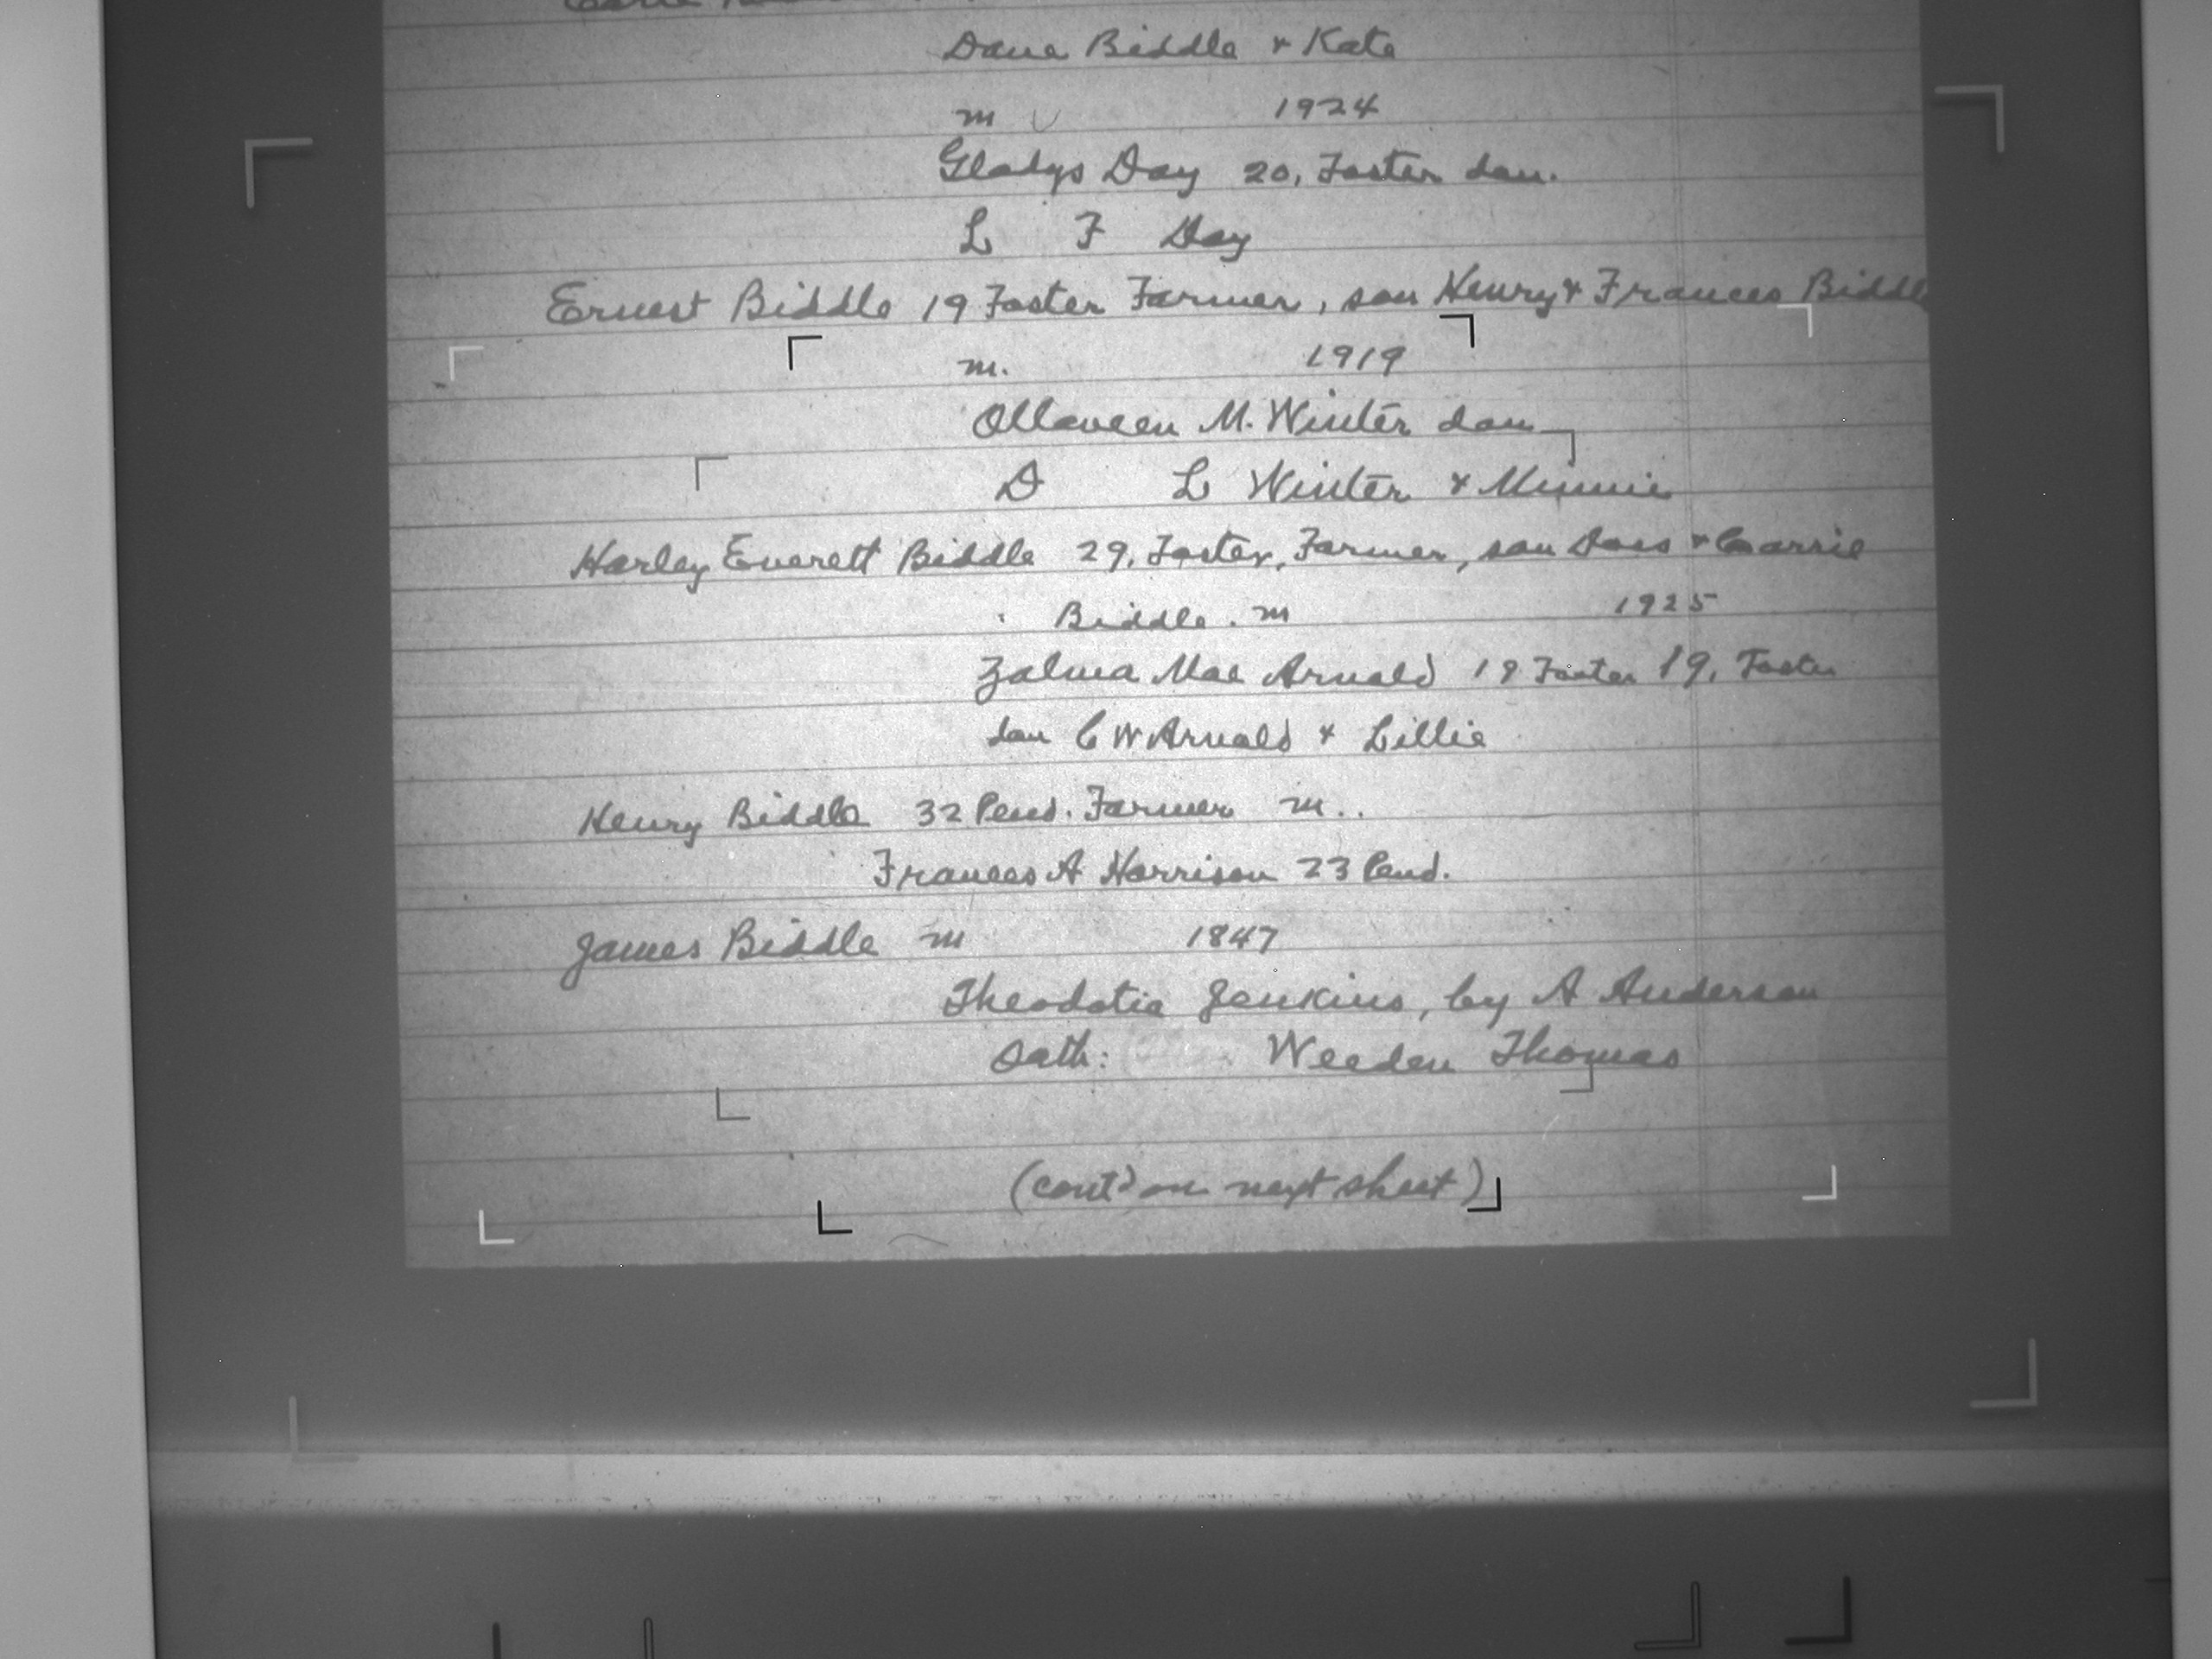 Dana Biddle & Kate
m 1924
Gladys Day 20, Foster dau.
L F Day
Ernest Biddle 19 Foster Farmer, son Henry & Frances Biddle
m. 1919
Ollaveen M. Winter dau
D L Winter & Minnie
Harley Everett Biddle 29, Foster, Farmer, son Doss & Carrie
Biddle. m 1925
Zalma Mae Arnold 19 Foster 19, Foster
dau C W Arnold & Lillie
Henry Biddle 32 Pend. Farmer m..
Frances A Harrison 23 Pend.
James Biddle m 1847
Theodotia Jenkins, by A Anderson
oath: Weeden Thomas
(contd on next sheet)